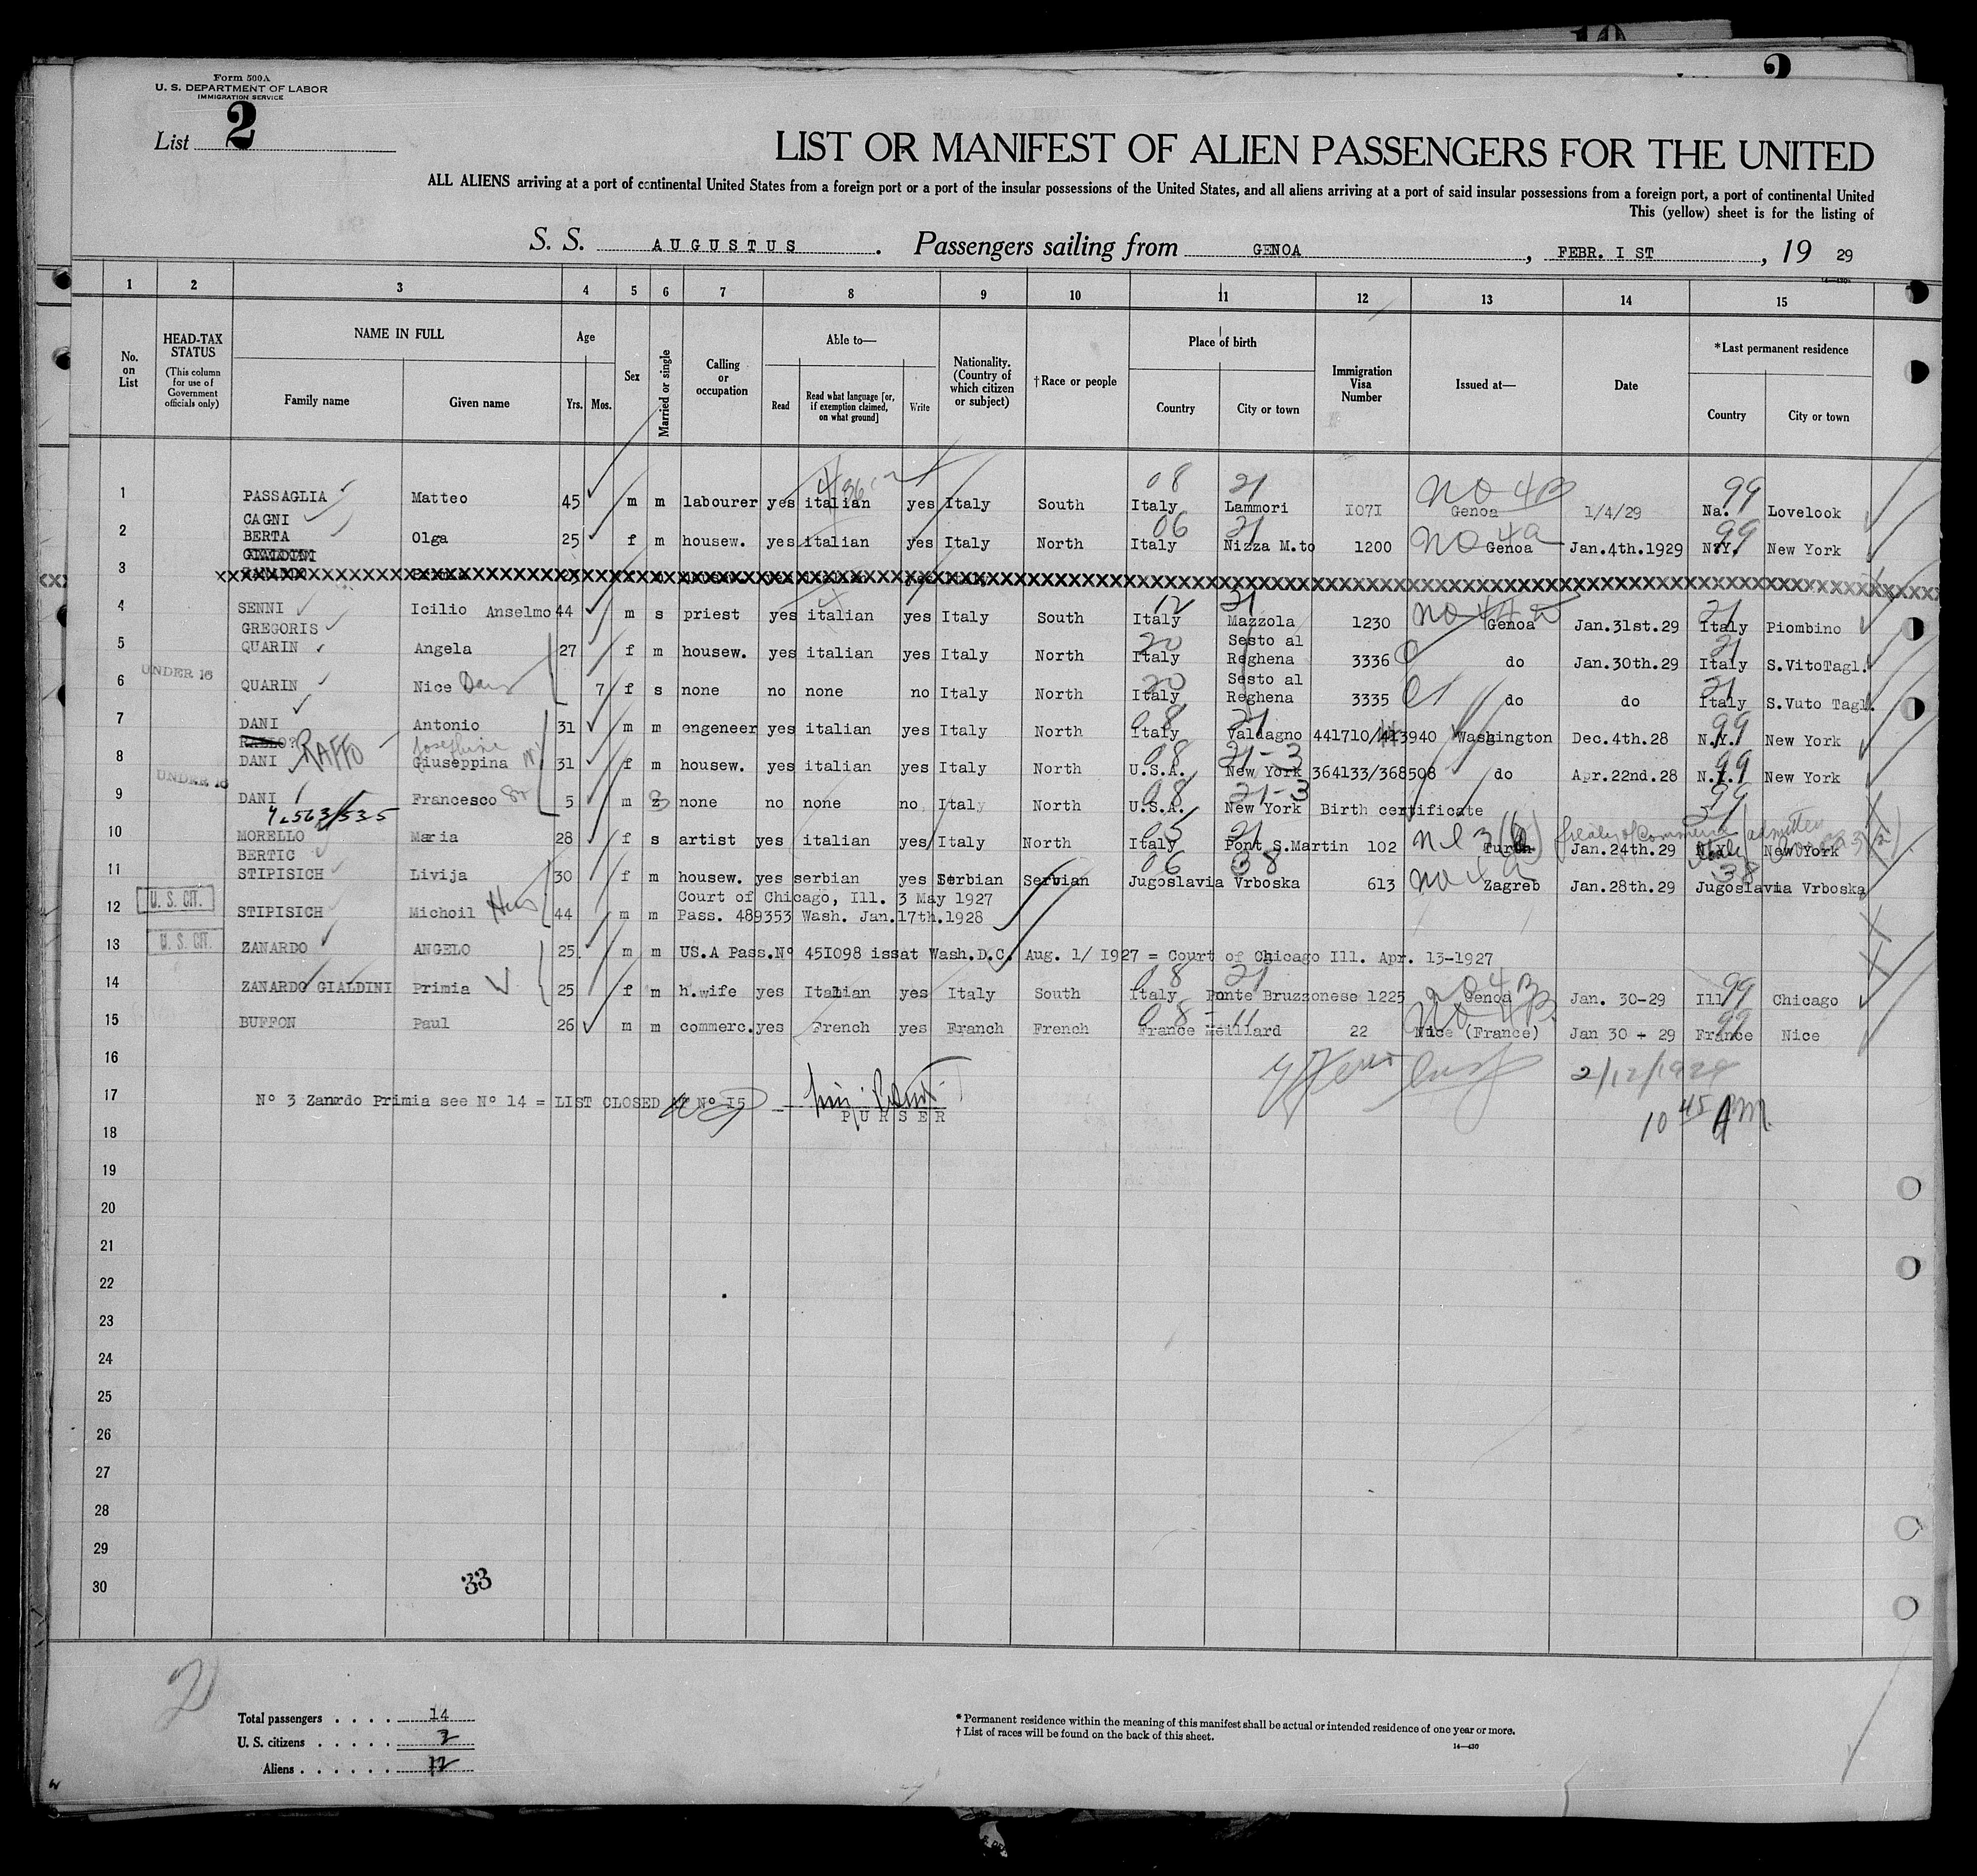 10
2
Form 500A
U. S. DEPARTMENT OF LABOR
IMMIGRATION SERVICE
List 2
LIST OR MANIFEST OF ALIEN PASSENGERS FOR THE UNITED
ALL ALIENS arriving at a port of continental United States from a foreign port or a port of the insular possessions of the United States, and all aliens arriving at a port of said insular possessions from a foreign port, a port of continental United
This (yellow) sheet is for the listing of
S. S. AUGUSTUS . Passengers sailing from GENOA , FEBR. I ST , 19 29
14—430
1 2 3 4 5 6 7 8 9 10 11 12 13 14 15
No. on List
HEAD-TAX STATUS (This column for use of Government officials only)
NAME IN FULL
Family name Given name
Age Yrs. Mos.
Sex
Married or single
Calling or occupation
Able to—
Read Read what language [or, if exemption claimed, on what ground] Write
Nationality. (Country of which citizen or subject)
†Race or people
Place of birth
Country City or town
Immigration Visa Number
Issued at—
Date
*Last permanent residence
Country City or town
08 21 NO 4B 99
1 PASSAGLIA Matteo 45 m m labourer yes italian yes Italy South Italy Lammori I07I Genoa 1/4/29 Na. Lovelook
CAGNI 06 21 NO 4a 99
2 BERTA Olga 25 f m housew. yes italian yes Italy North Italy Nizza M.to 1200 Genoa Jan.4th.1929 N.Y. New York
GIALDINI
3
12 21 21
4 SENNI Icilio Anselmo 44 m s priest yes italian yes Italy South Italy Mazzola 1230 Genoa Jan.31st.29 Italy Piombino
GREGORIS 20 21
5 QUARIN Angela 27 f m housew. yes italian yes Italy North Italy Sesto al Reghena 3336 do Jan.30th.29 Italy S.VitoTagl.
UNDER 16 20 21
6 QUARIN Nice 7 f s none no none no Italy North Italy Sesto al Reghena 3335 do do Italy S.Vuto Tagl.
08 21 99
7 DANI Antonio 31 m m engeneer yes italian yes Italy North Italy Valdagno 441710/413940 Washington Dec.4th.28 N.Y. New York
RAFFO Josephine 08 21-3 99
8 DANI Giuseppina 31 f m housew. yes italian yes Italy North U.S.A. New York 364133/368508 do Apr.22nd.28 N.Y. New York
UNDER 16 08 21-3 99
9 DANI Francesco 5 m none no none no Italy North U.S.A. New York Birth certificate
05 21
10 MORELLO Maria 28 f s artist yes italian yes Italy North Italy Pont S.Martin 102 Turin Jan.24th.29 Italy New York
BERTIC 06 38 NO 4a 38
11 STIPISICH Livija 30 f m housew. yes serbian yes Serbian Serbian Jugoslavia Vrboska 613 Zagreb Jan.28th.29 Jugoslavia Vrboska
U. S. CIT. Court of Chicago, Ill. 3 May 1927
12 STIPISICH Michoil 44 m m Pass. 489353 Wash. Jan.17th.1928
U. S. CIT.
13 ZANARDO ANGELO 25 m m US.A Pass.Nº 45I098 issat Wash.D.C. Aug. 1/ I927 = Court of Chicago Ill. Apr. 13-1927
08 21 99
14 ZANARDO GIALDINI Primia 25 f m h.wife yes Italian yes Italy South Italy Ponte Bruzzonese 1225 Genoa Jan. 30-29 Ill Chicago
08 - 11 NO 4B 99
15 BUFFON Paul 26 m m commerc. yes French yes Franch French France Meillard 22 Nice (France) Jan 30 - 29 France Nice
16
2/12/1929
17 Nº 3 Zanardo Primia see Nº 14 = LIST CLOSED AT Nº I5
PURSER
10 45 AM.
18
19
20
21
22
23
24
25
26
27
28
29
30
33
2
Total passengers . . . . 14
U. S. citizens . . . . .
Aliens . . . . . . 12
* Permanent residence within the meaning of this manifest shall be actual or intended residence of one year or more.
† List of races will be found on the back of this sheet.
14—430